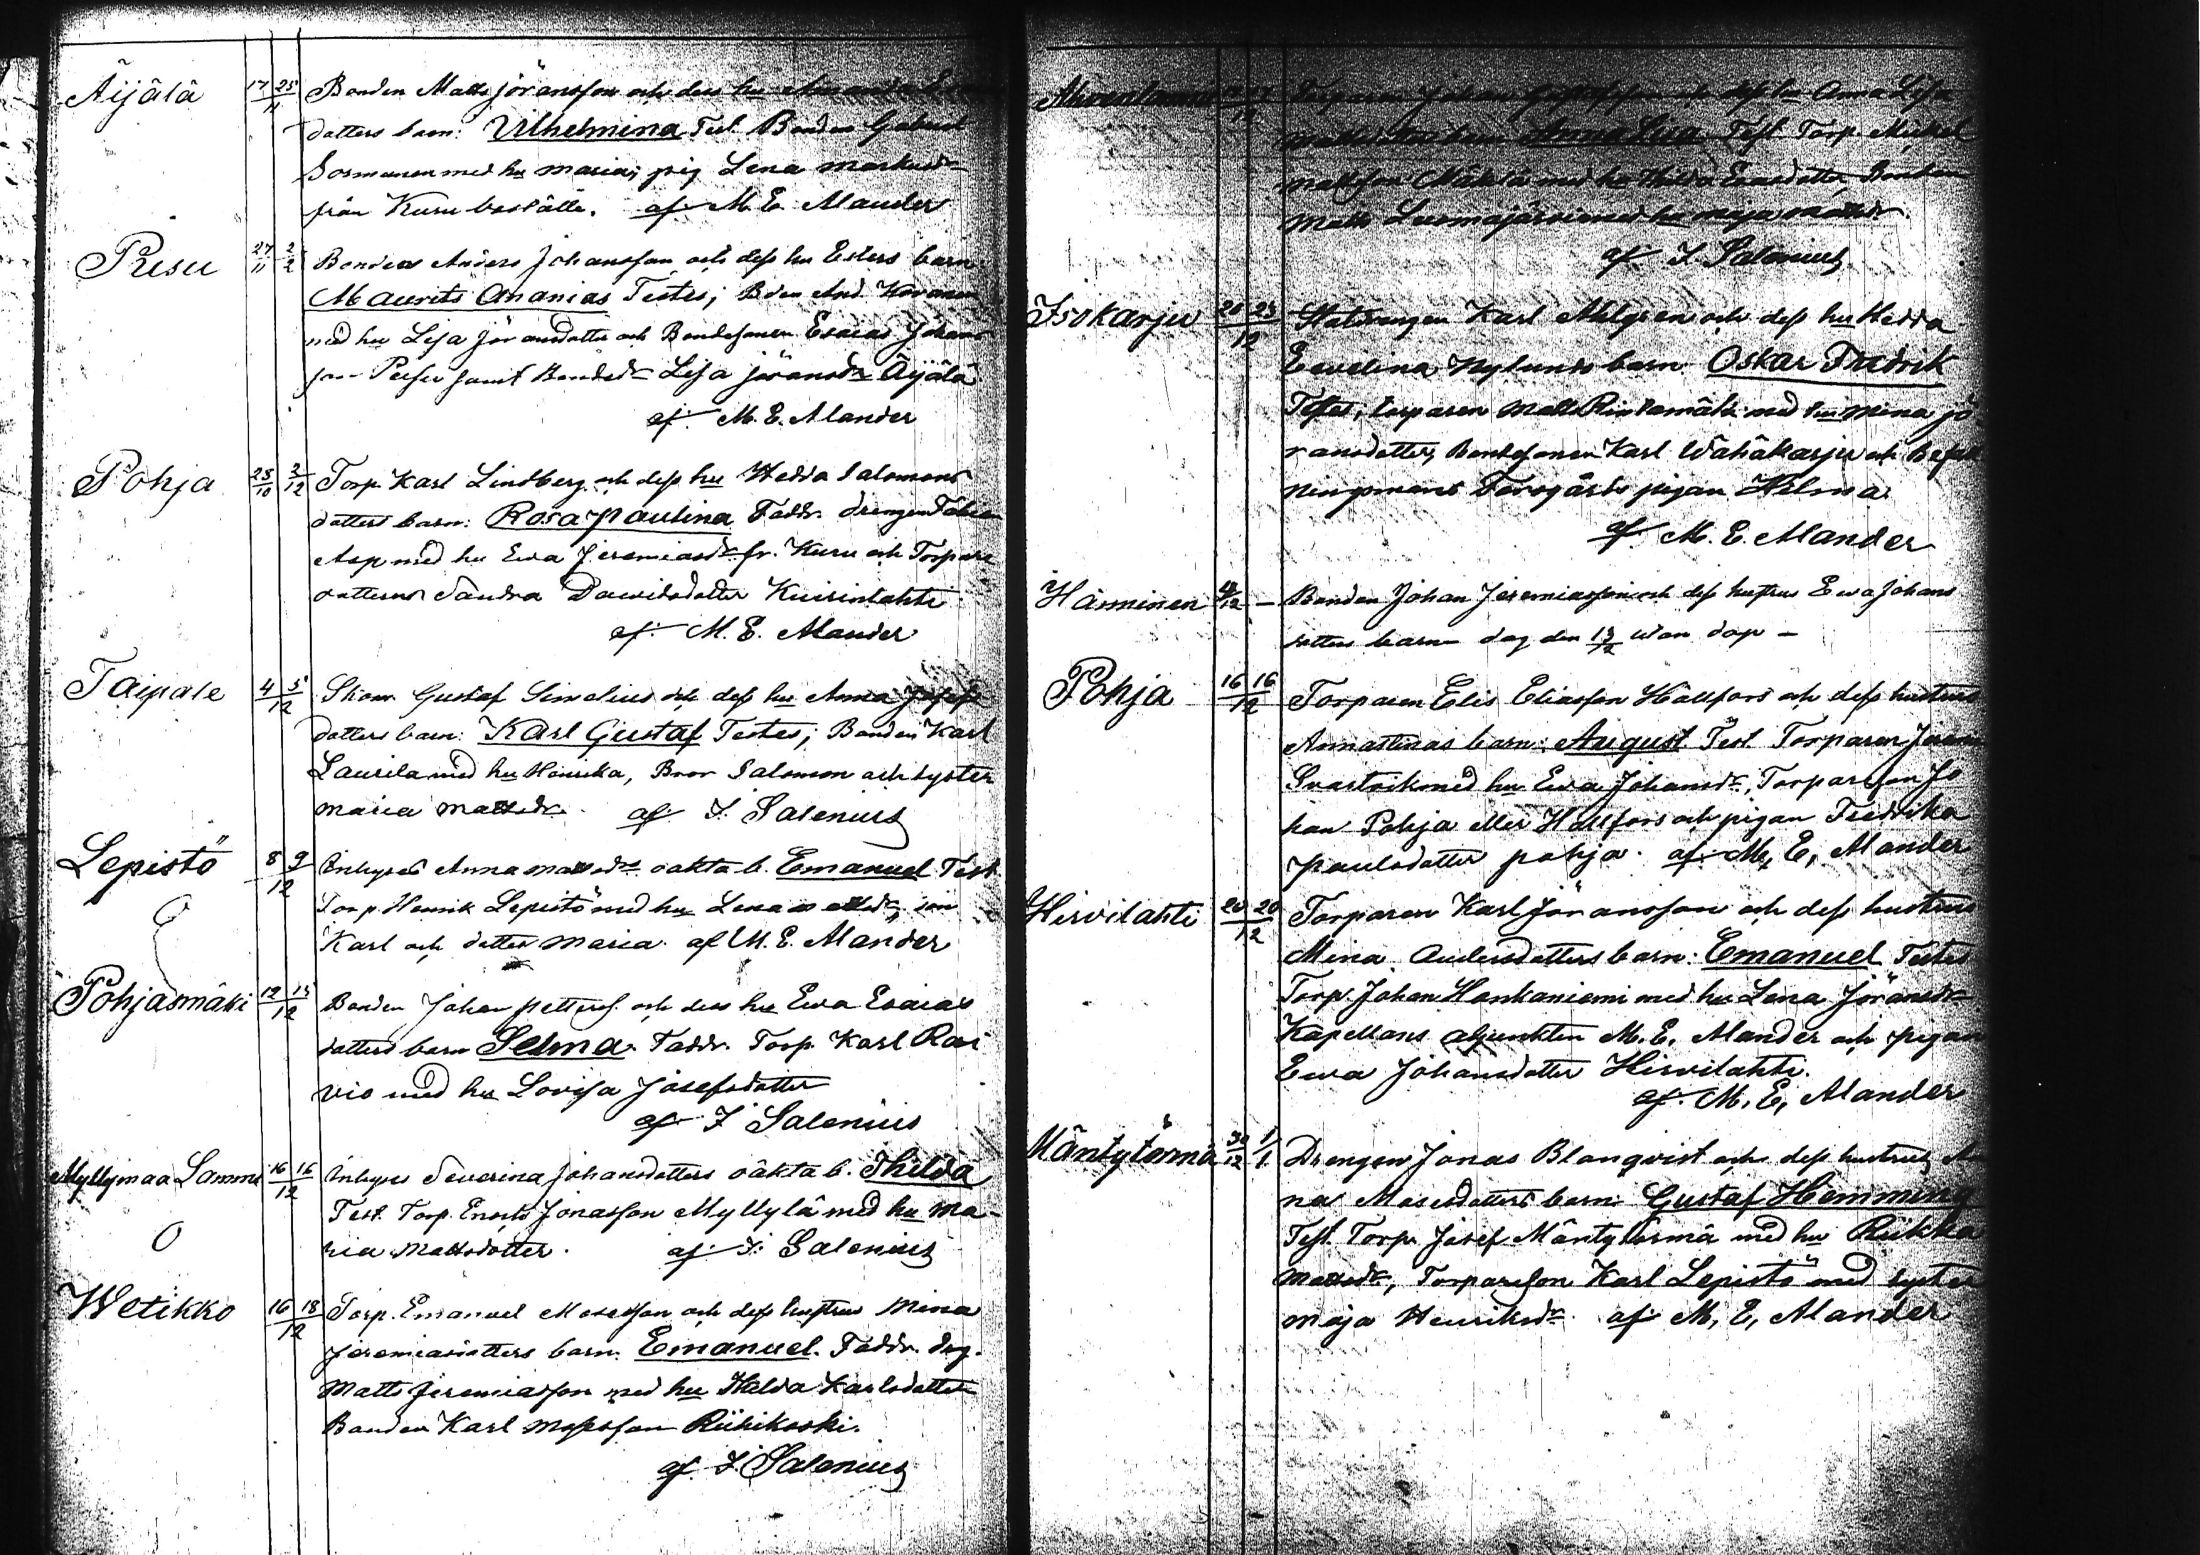 Äijälä 17 25/11 Bonden Matts Jöransson och dess hu
dotters barn: Vilhelmina Test Bonden Gabriel
Sormunen med hu Maria; pig Lena Marksdr
från Kuru boställe. af M. E. Alander
Pusu 27/11 2/12 Bonden Anders Johansson och dess hu Esters barn
Maurits Ananias Testes; Bden And
med hu Lisa Jöransdotter och Bondesonen Esaias Johans
son samt Bondedr Lisa Jöransdr Äijälä
af M. E. Alander
Pohja 28/10 2/12 Torp. Karl Lindberg och dess hu Hedda Salomons
dotters barn: Rosa Paulina Faddr. drengen
Asp med hu Eva Jeremiasdr fr. Kuru och Torpare
dottern Sandra Davidsdotter
af M. E. Alander
Taipale 4 5/12 Skom. Gustaf Simelius och dess hu Anna Josefs
dotters barn: Karl Gustaf Testes; Bonden Karl
Laurila med hu Henrika, Bror Salomon och syster
Maria Mattsdr. af J. Salenius
Lepistö 8 9/12 Inhyses Anna Mattsdr oäkta b. Emanuel Test
Torp Henrik Lepistö med hu Lena Mattsdr, son
Karl och dotter Maria. af M. E. Alander
Pohjasmäki 12 15/12 Bonden Johan Petters. och dess hu Eva Esaias
dotters barn Selma. Faddr. Torp. Karl Rai
vio med hu Lovisa Josefsdotter
af J Salenius
Myllymaa Lammi 16 16/12 Inhyses Severina Johansdotters oäkta b. Thilda
Test. Torp. Enok Jonasson Myllylä med hu Ma-
ria Mattsdotter. af J. Salenius
Wetikko 16 18/12 Torp. Emanuel Mosesson och dess hustru Mina
Jeremiasdotters barn. Emanuel. Faddr. drg.
Matts Jeremiasson med hu Helda Karlsdotter
Bonden Karl Mosesson Riihikoski.
af J. Salenius
Torparen Johan Gustafsson och dess hu Anna Lisa
barn Anna Lisa Test Torp. Mickel
Mattsson Mäkelä med hu Hilda Esasdotter, Bonden
Matts Luomajärvi med hu Maja Mattsdr.
af J. Salenius
Isokarju 20 23/12 Karl och dess hu Hedda
Evelina Nylunds barn Oskar Fredrik
Testes, torparen Matts Rintamäki med hu Mina Jö
ransdotter, Bondesonen Karl Wähäkarju och Befal
ningsmans pigan Helma.
af M. E. Alander
Hänninen /12 – Bonden Johan Jeremiasson och dess hustru Eva Johans
dotters barn dog den 13/12 utan dop –
Pohja 16 16/12 Torparen Elis Eliasson Hallfors och dess hustrus
Annastinas barn: August. Test Torparen
med hu Eva Johansdr, Torparson Jo
han Pohja eller Hallfors och pigan Fredrika
Paulsdotter Pohja. af M, E, Alander
Hirvilahti 20 20/12 Torparen Karl Jöransson och dess hustrus
Mina Andersdotters barn: Emanuel Testes
Torp. Johan Honkaniemi med hu Lena Jöransdr
Kapellans adjunkten M. E. Alander och pigan
Eva Johansdotter Hirvilahti.
af M, E, Alander
Mäntytörmä 30/12 1/1 Drengen Jonas Blomqvist och dess hustru An
na Mosesdotters barn: Gustaf Hemming
Test Torp. Josef Mäntytörmä med hu Riikka
Mattsdr, Torparson Karl Lepistö med syster
Maja Henriksdr. af M, E, Alander